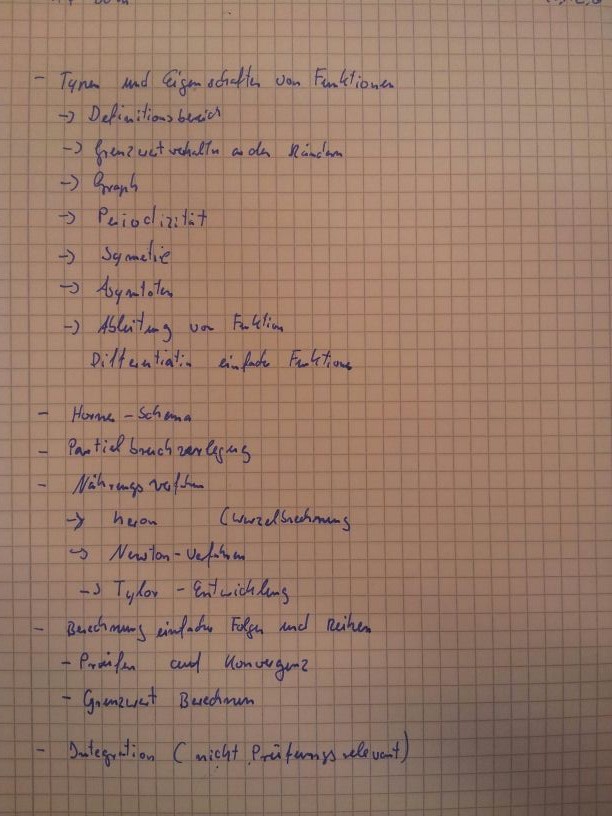 - Typen und Eigenschaften von Funktionen
-> Definitionsbereich
-> Grenzwertverhalten an den Rändern
-> Graph
-> Periodizität
-> Symetrie
-> Asymtoten
-> Ableitung von Funktion
Differentiation einfacher Funktionen
- Horner-Schema
- Partialbruchzerlegung
- Nährungsverfahren
-> heron (Wurzelbrechnung
-> Newton-Verfahren
-> Tylor - Entwicklung
- Berechnung einfacher Folgen und Reihen
- Prüfen auf Konvergenz
- Grenzwert Berechnen
- Integration (nicht Prüfungsrelevant)